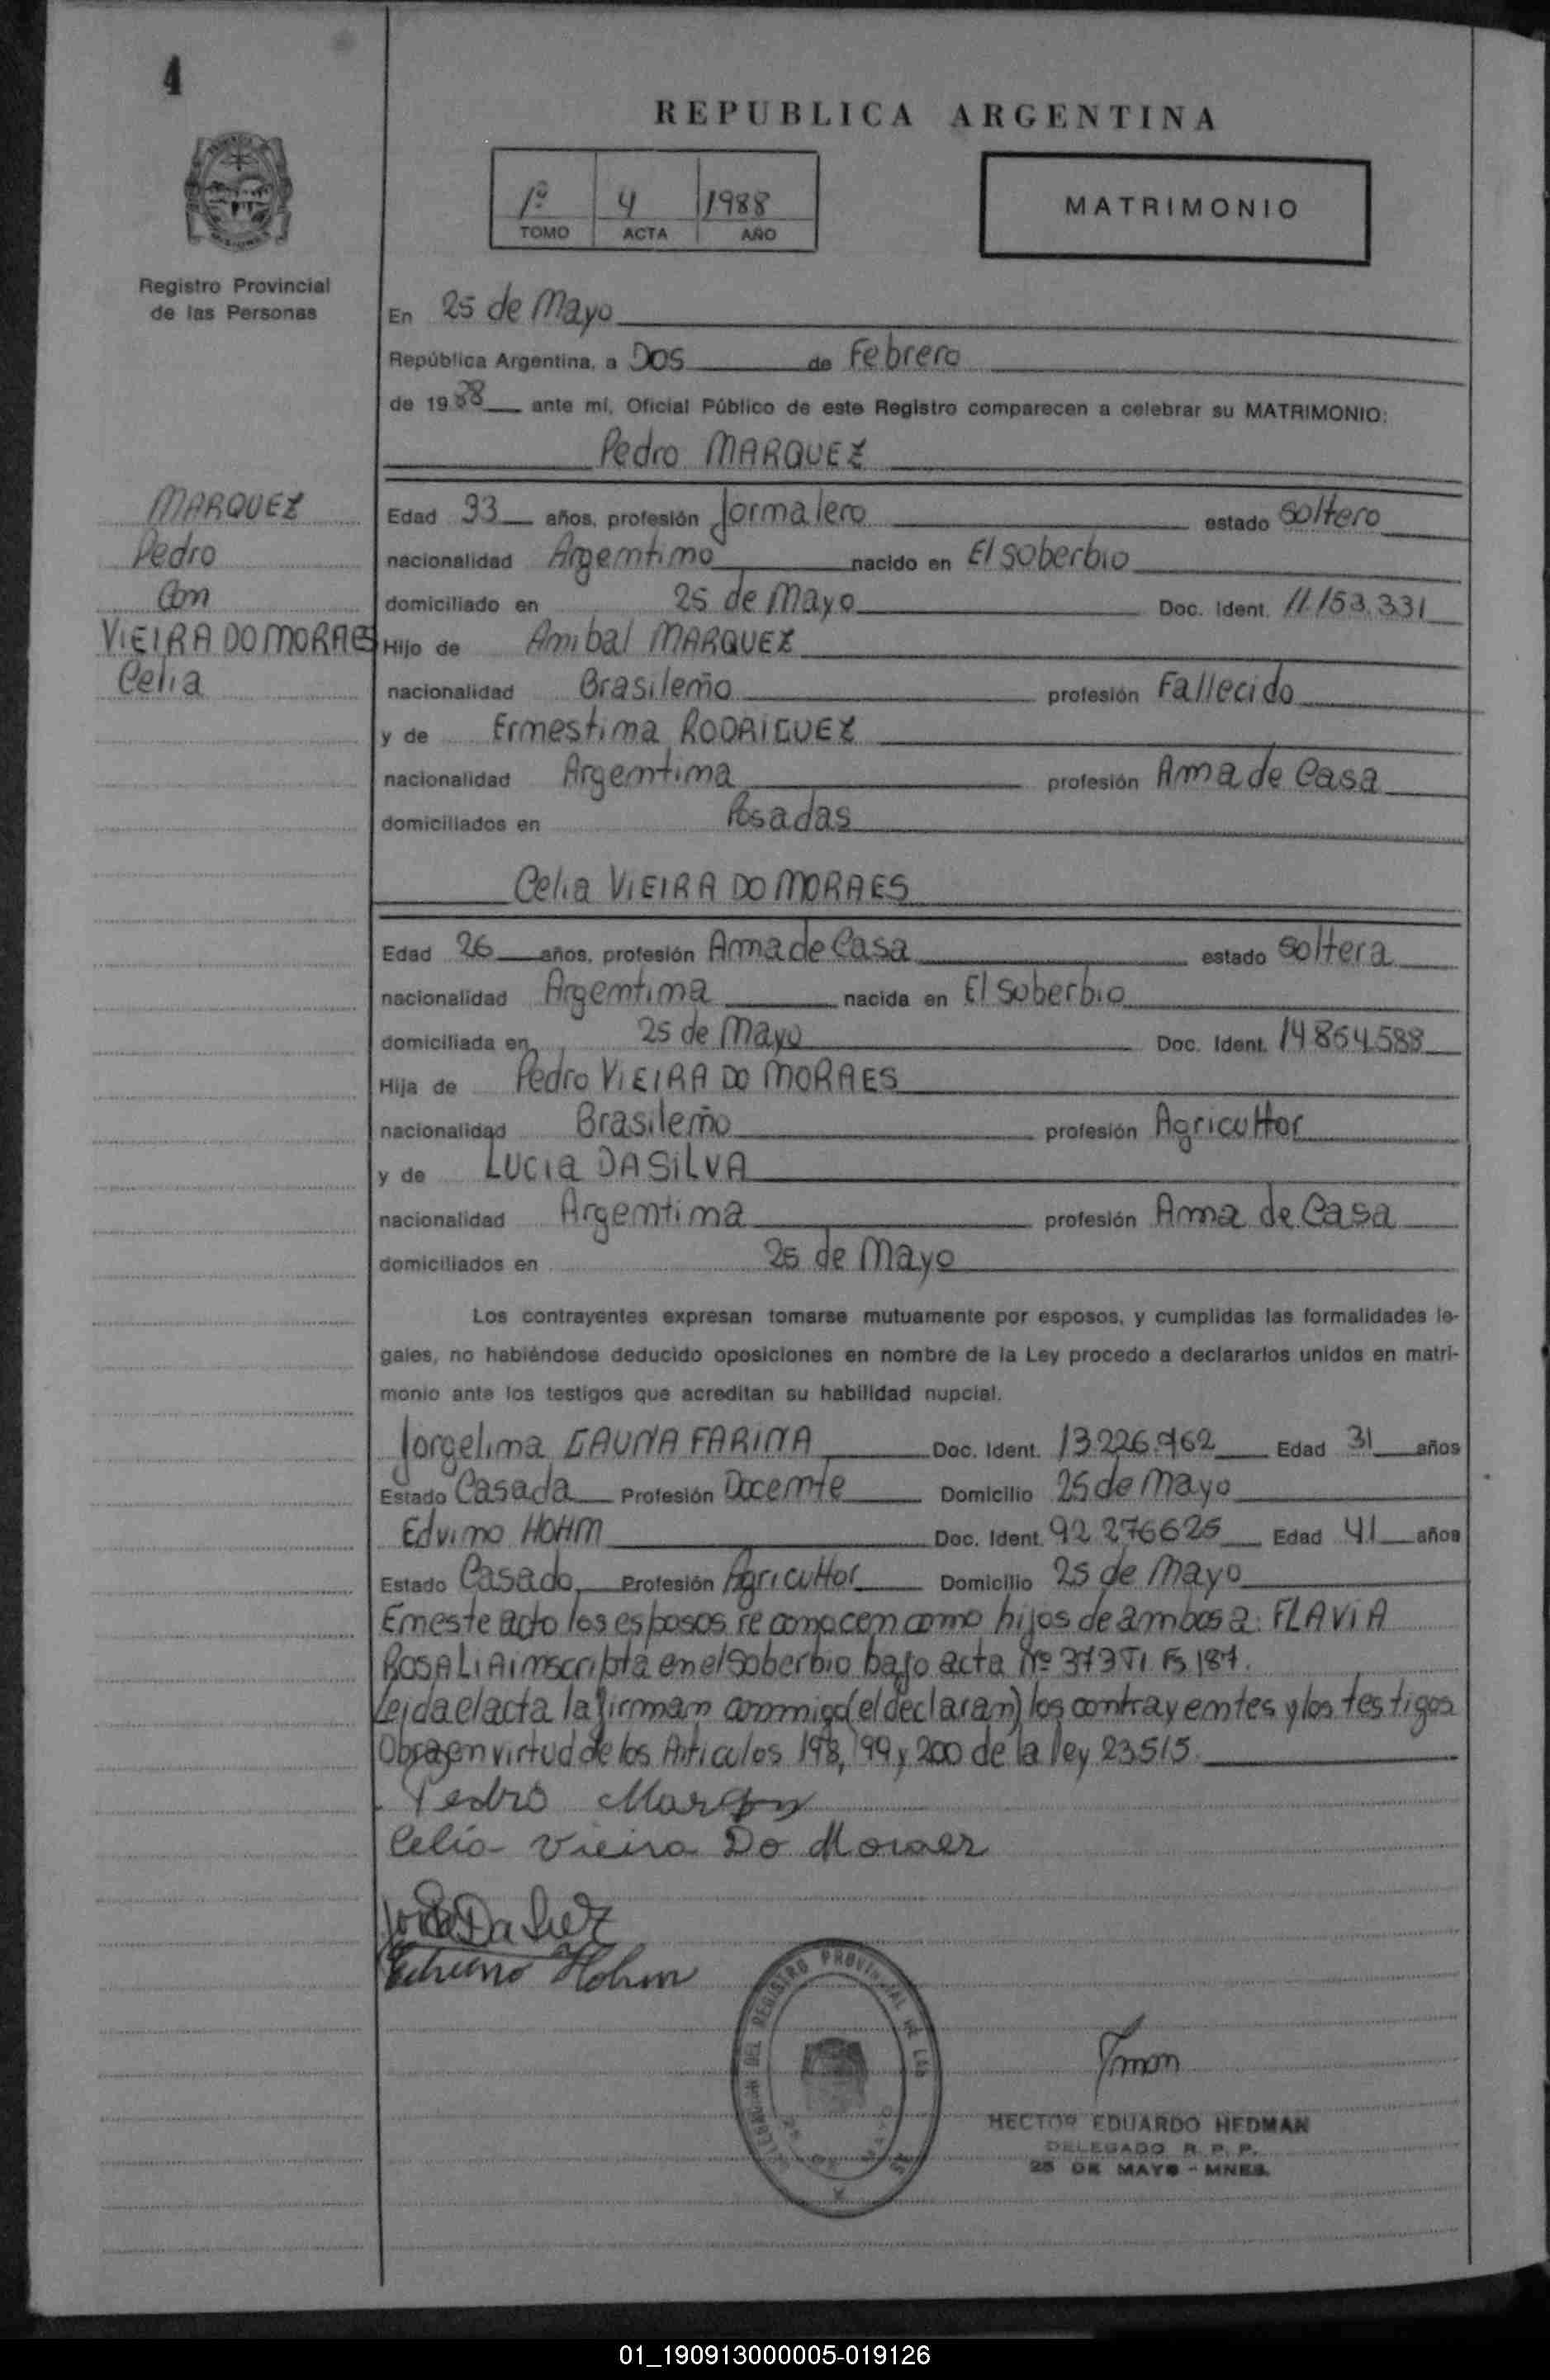 4
REPUBLICA ARGENTINA
1º 4 1988
TOMO ACTA AÑO
MATRIMONIO
Registro Provincial
de las Personas
En 25 de Mayo
República Argentina, a Dos de Febrero
de 1988 ante mí, Oficial Público de este Registro comparecen a celebrar su MATRIMONIO:
Pedro MARQUEZ
MARQUEZ
Pedro
Con
VIEIRA DO MORAES
Celia
Edad 33 años, profesión Jornalero estado Soltero
nacionalidad Argentino nacido en El Soberbio
domiciliado en 25 de Mayo Doc. Ident. 11.153.331
Hijo de Anibal MARQUEZ
nacionalidad Brasileño profesión Fallecido
y de Ernestina RODRIGUEZ
nacionalidad Argentina profesión Ama de Casa
domiciliados en Posadas
Celia VIEIRA DO MORAES
Edad 26 años, profesión Ama de Casa estado Soltera
nacionalidad Argentina nacida en El Soberbio
domiciliada en 25 de Mayo Doc. Ident. 14.864.588
Hija de Pedro VIEIRA DO MORAES
nacionalidad Brasileño profesión Agricultor
y de Lucia DA SILVA
nacionalidad Argentina profesión Ama de Casa
domiciliados en 25 de Mayo
Los contrayentes expresan tomarse mutuamente por esposos, y cumplidas las formalidades le-
gales, no habiéndose deducido oposiciones en nombre de la Ley procedo a declararlos unidos en matri-
monio ante los testigos que acreditan su habilidad nupcial.
Jorgelina GAUNA FARIÑA Doc. Ident. 13.226.962 Edad 31 años
Estado Casada Profesión Docente Domicilio 25 de Mayo
Edvino HOHM Doc. Ident. 92 276625 Edad 41 años
Estado Casado Profesión Agricultor Domicilio 25 de Mayo
En este acto los esposos reconocen como hijos de ambos a: FLAVIA
ROSALIA inscripta en el Soberbio bajo acta Nº 373 T1 Fs 187.
Leida el acta la firman conmigo (el declaran) los contrayentes y los testigos
Obra en virtud de los Articulos 198, 199 y 200 de la ley 23515
Pedro
Celia Vieira Do Moraes
Hohm
REGISTRO PROVINCIAL DE LAS
HECTOR EDUARDO HEDMAN
DELEGADO R. P. P.
25 DE MAYO - MNES.
01_190913000005-019126